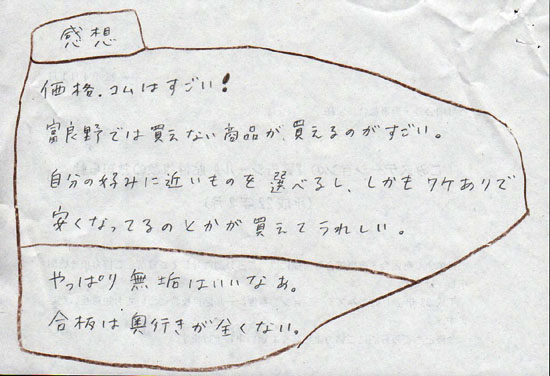 感想
価格.コムはすごい!
富良野では買えない商品が、買えるのがすごい。
自分の好みに近いものを選べるし、しかもワケありで
安くなってるのとかが買えてうれしい。
やっぱり無垢はいいなぁ。
合板は奥行きが全くない。